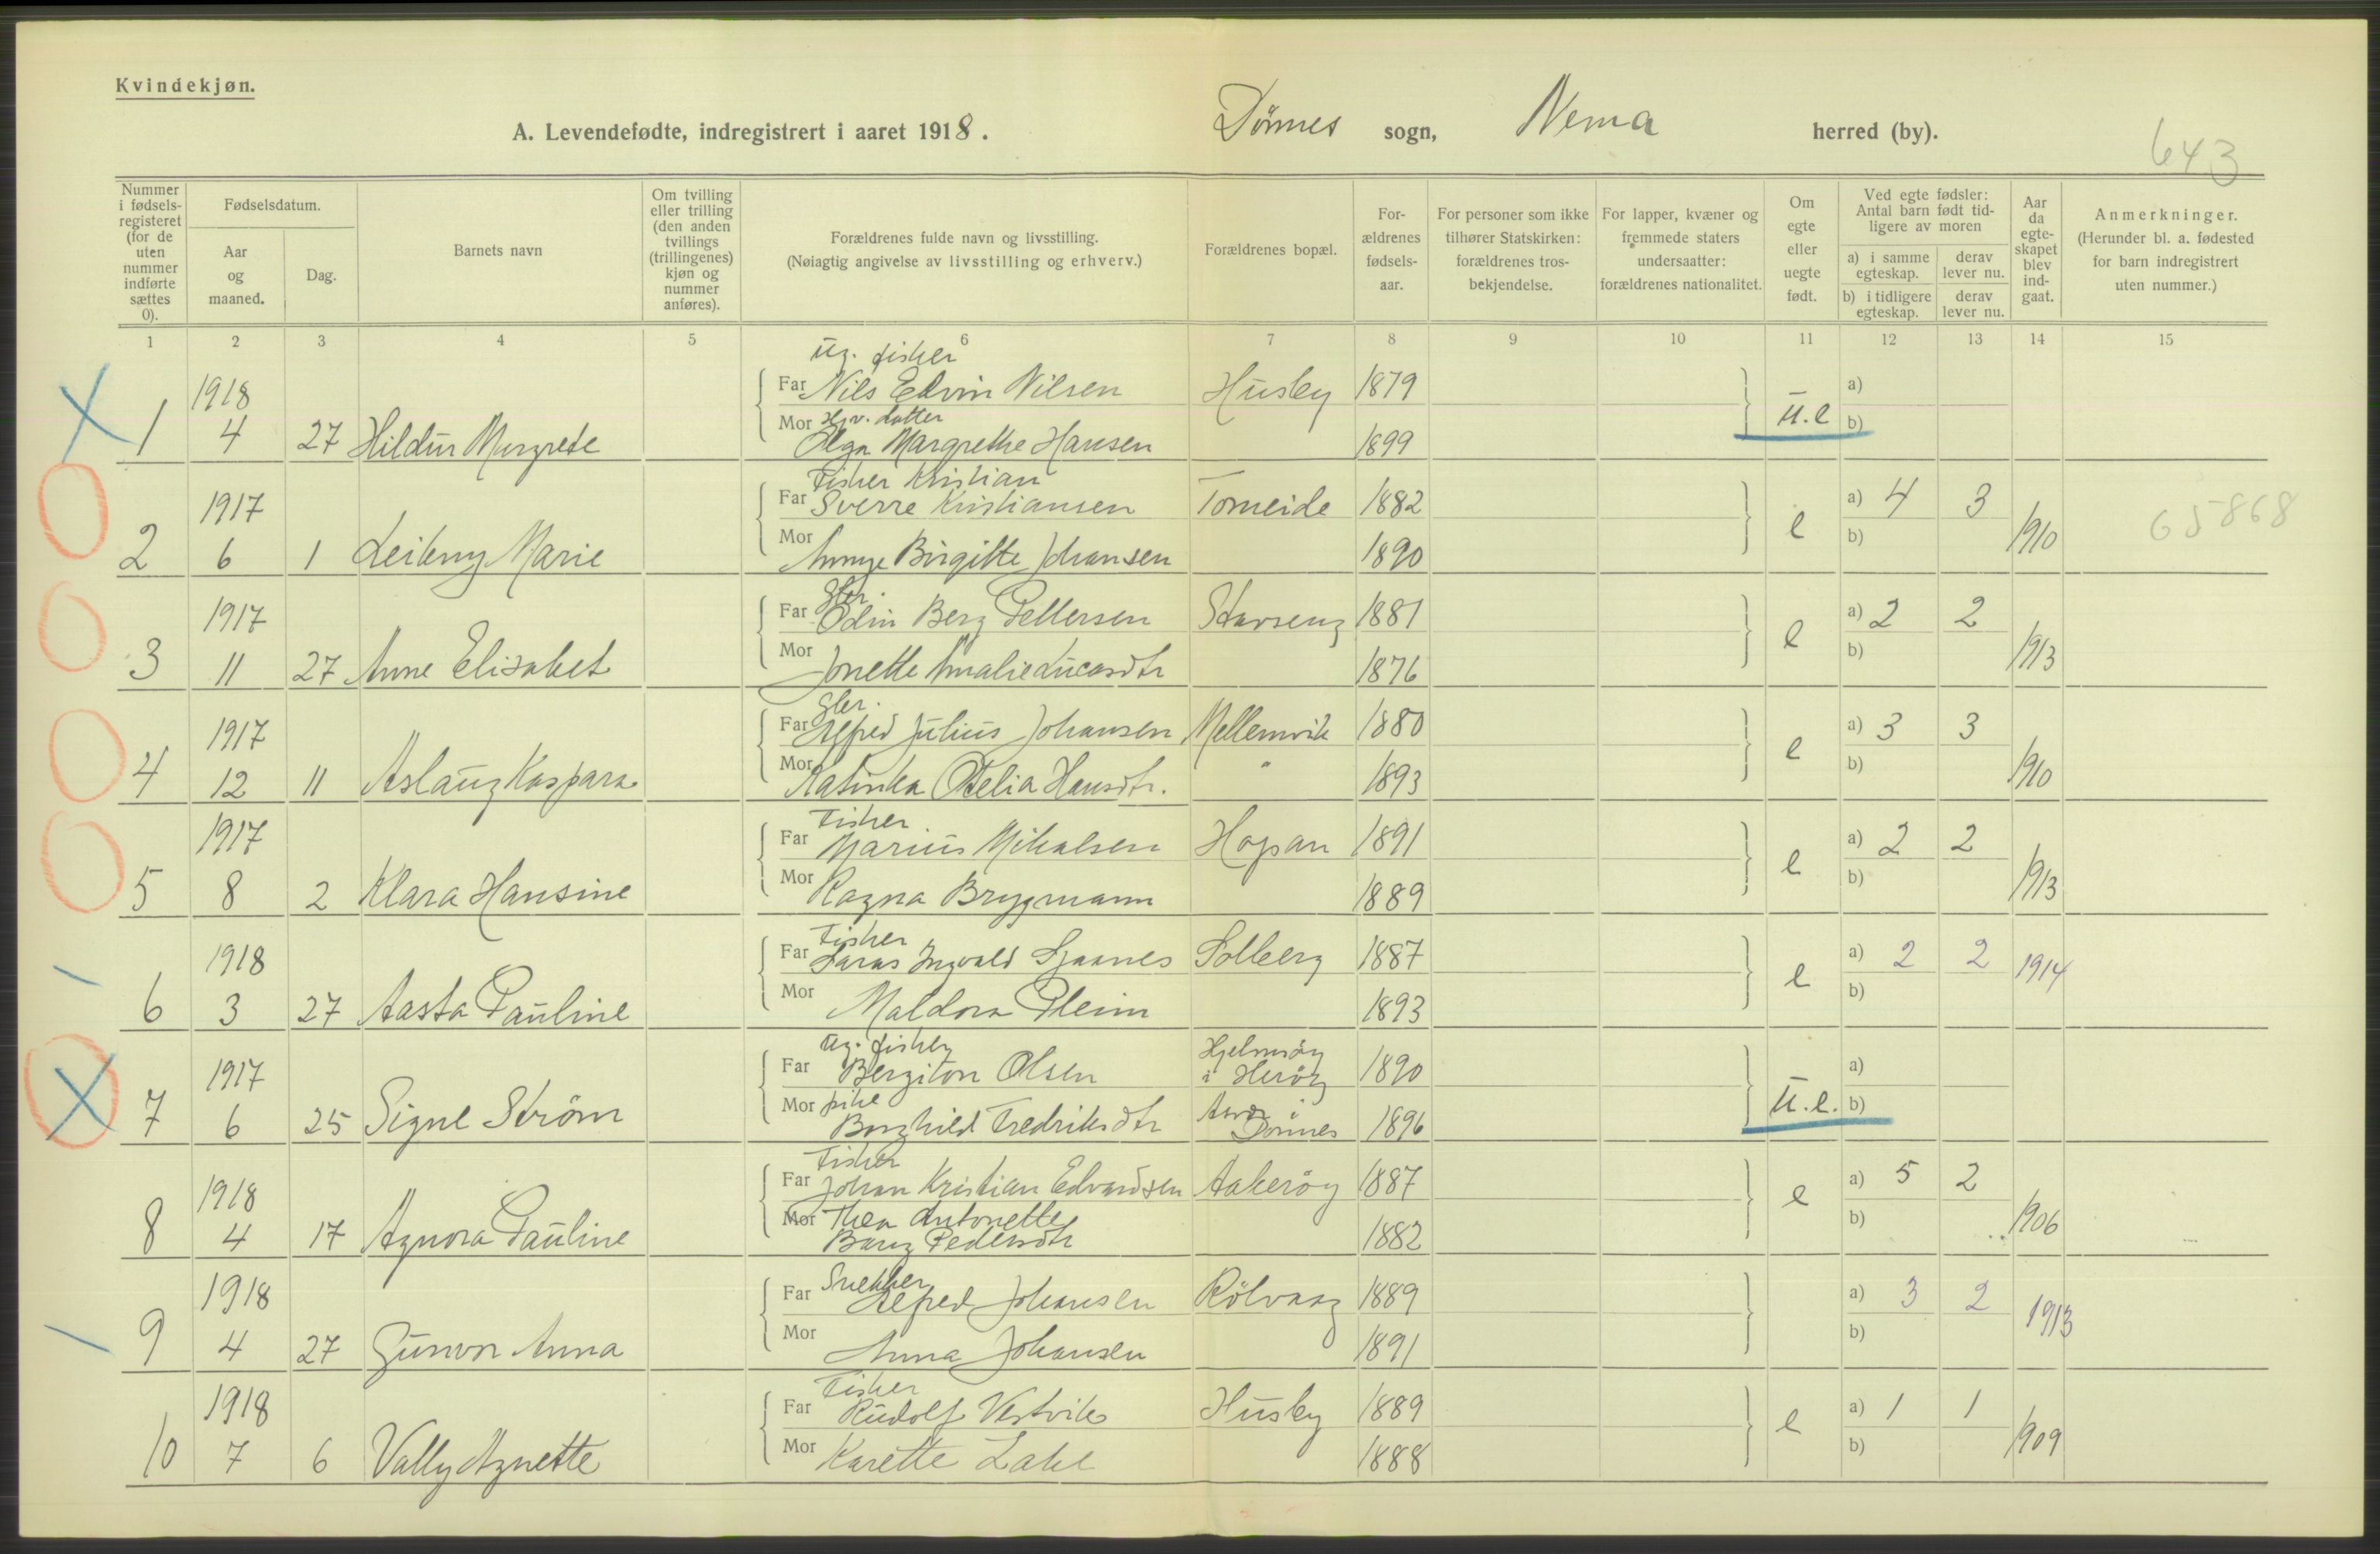 Kvindekjøn.
A. Levendefødte, indregistrert i aaret 1918. Dönnes sogn, Nesna herred (by).
643
Nummer i fødselsregisteret (for de uten nummer indførte sættes 0).
Fødselsdatum.
Aar og maaned.
Dag.
Barnets navn
Om tvilling eller trilling (den anden tvillings (trillingenes) kjøn og nummer anføres).
Forældrenes fulde navn og livsstilling. (Nøiagtig angivelse av livsstilling og erhverv.)
Forældrenes bopæl.
For-ældrenes fødsels-aar.
For personer som ikke tilhører Statskirken: forældrenes tros-bekjendelse.
For lapper, kvæner og fremmede staters undersaatter: forældrenes nationalitet.
Om egte eller uegte født.
Ved egte fødsler: Antal barn født tid-ligere av moren
a) i samme egteskap. derav lever nu.
b) i tidligere egteskap. derav lever nu.
Aar da egte-skapet blev ind-gaat.
Anmerkninger. (Herunder bl. a. fødested for barn indregistrert uten nummer.)
1 2 3 4 5 6 7 8 9 10 11 12 13 14 15
Ug. fisker
1918 Far Nils Edvin Nilsen Husby 1879 a)
Mor datter
1 4 27 Hildur Margrete Olga Margrethe Hansen 1899 u.e b)
Fisher Kristian
1917 Far Sverre Kristiansen Tomeide 1882 e a) 4 3
2 6 1 Leikny Marie Mor Birgitte Johansen 1890 b) 1910
65868
Gbr.
1917 Far Odin Berg Pettersen Stavseng 1881 e a) 2 2
3 11 27 Anne Elisabet Mor Jonette Amalie Lucasdtr 1876 b) 1913
Gbr.
1917 Far Alfred Julius Johansen Mellemvik 1880 e a) 3 3
4 12 11 Aslaug Kaspara Mor Katinka Otelia Hansdtr. " 1893 b) 1910
Fisher
1917 Far Marius Mikalsen Hopan 1891 e a) 2 2
5 8 2 Klara Hansine Mor Ragna Brygmann 1889 b) 1913
Fisher
1918 Far Ingvald Solberg 1887 e a) 2 2 1914
6 3 27 Aasta Pauline Mor Maldora Pleim 1893 b)
Ug. fisker
1917 Far Bergiton Olsen Hjelmsöy i Heröy 1890 a)
Mor pike
7 6 25 Signe Ström Borghild Fredriksdtr i Dönnes 1896 u.e. b)
Fisher
1918 Far Johan Kristian Edvardsen Aakeröy 1887 e a) 5 2
Mor Thea Antonette
8 4 17 Agnora Pauline Pedersdtr 1882 b) 1906
Snekker
1918 Far Alfred Johansen Rölvaag 1889 a) 3 2 1913
9 4 27 Gunvor Anna Mor Anna Johansen 1891 b)
Fisher
1918 Far Rudolf Vestvik Husby 1889 e a) 1 1
10 7 6 Vally Agnette Mor Karette Zahl 1888 b) 1909